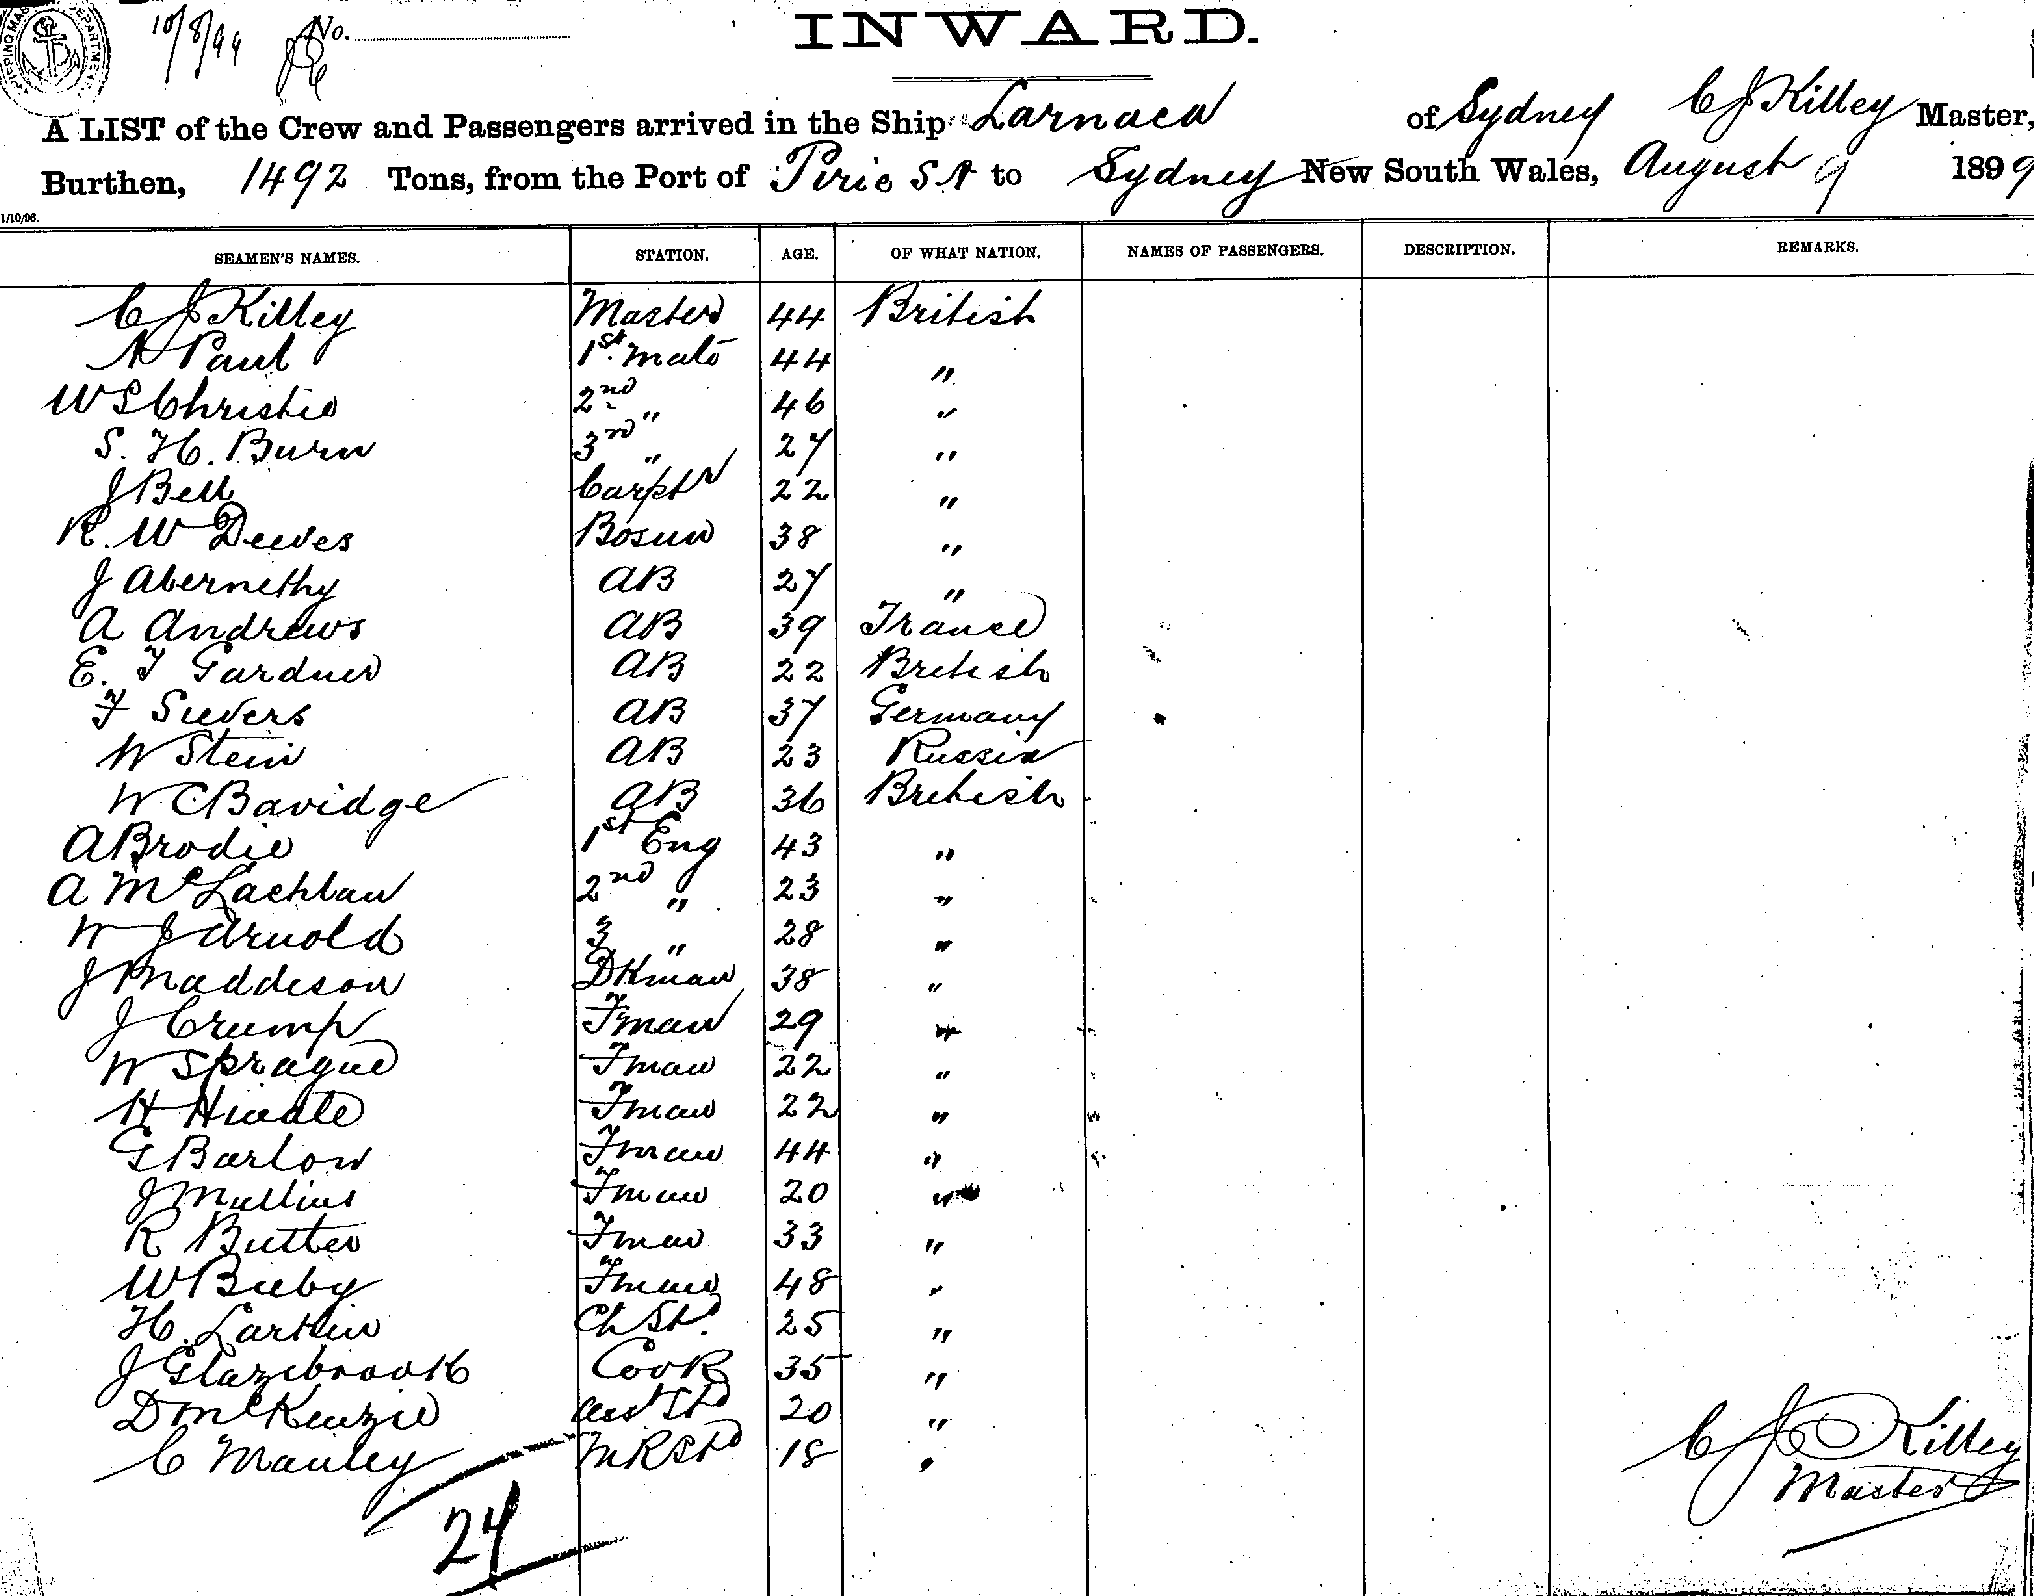 10/8/99 No.
INWARD.
A LIST of the Crew and Passengers arrived in the Ship Larnaca of Sydney C J Killey Master,
Burthen, 1492 Tons, from the Port of Pirie SA to Sydney New South Wales, August 9 1899
1/10/96.
SEAMEN'S NAMES. STATION. AGE. OF WHAT NATION. NAMES OF PASSENGERS. DESCRIPTION. REMARKS.
C J Killey Master 44 British
A Paul 1st. Mate 44 "
W S Christie 2nd " 46 "
S. H. Burn 3rd " 27 "
J Bell Carptr 22 "
R. W Deeves Bosun 38 "
J Abernethy AB 27 "
A Andrews AB 39 France
E. F Gardner AB 22 British
F Sievers AB 37 Germany
W Stein AB 23 Russia
W C Bavidge AB 36 British
A Brodie 1st Eng 43 "
A McLachlan 2nd " 23 "
W J Arnold 3 " 28 "
J Maddison DKman 38 "
J Crump Fman 29 "
W Sprague Fman 22 "
H Fman 22 "
G Barlow Fman 44 "
J Mullins Fman 20 "
R Butter Fman 33 "
W Fman 48 "
H. Larkin Ch St. 25 "
J Glazebrook Cook 35 "
D McKenzie Std 20 "
C Manley M R Std 18 "
C J Killey
Master
27